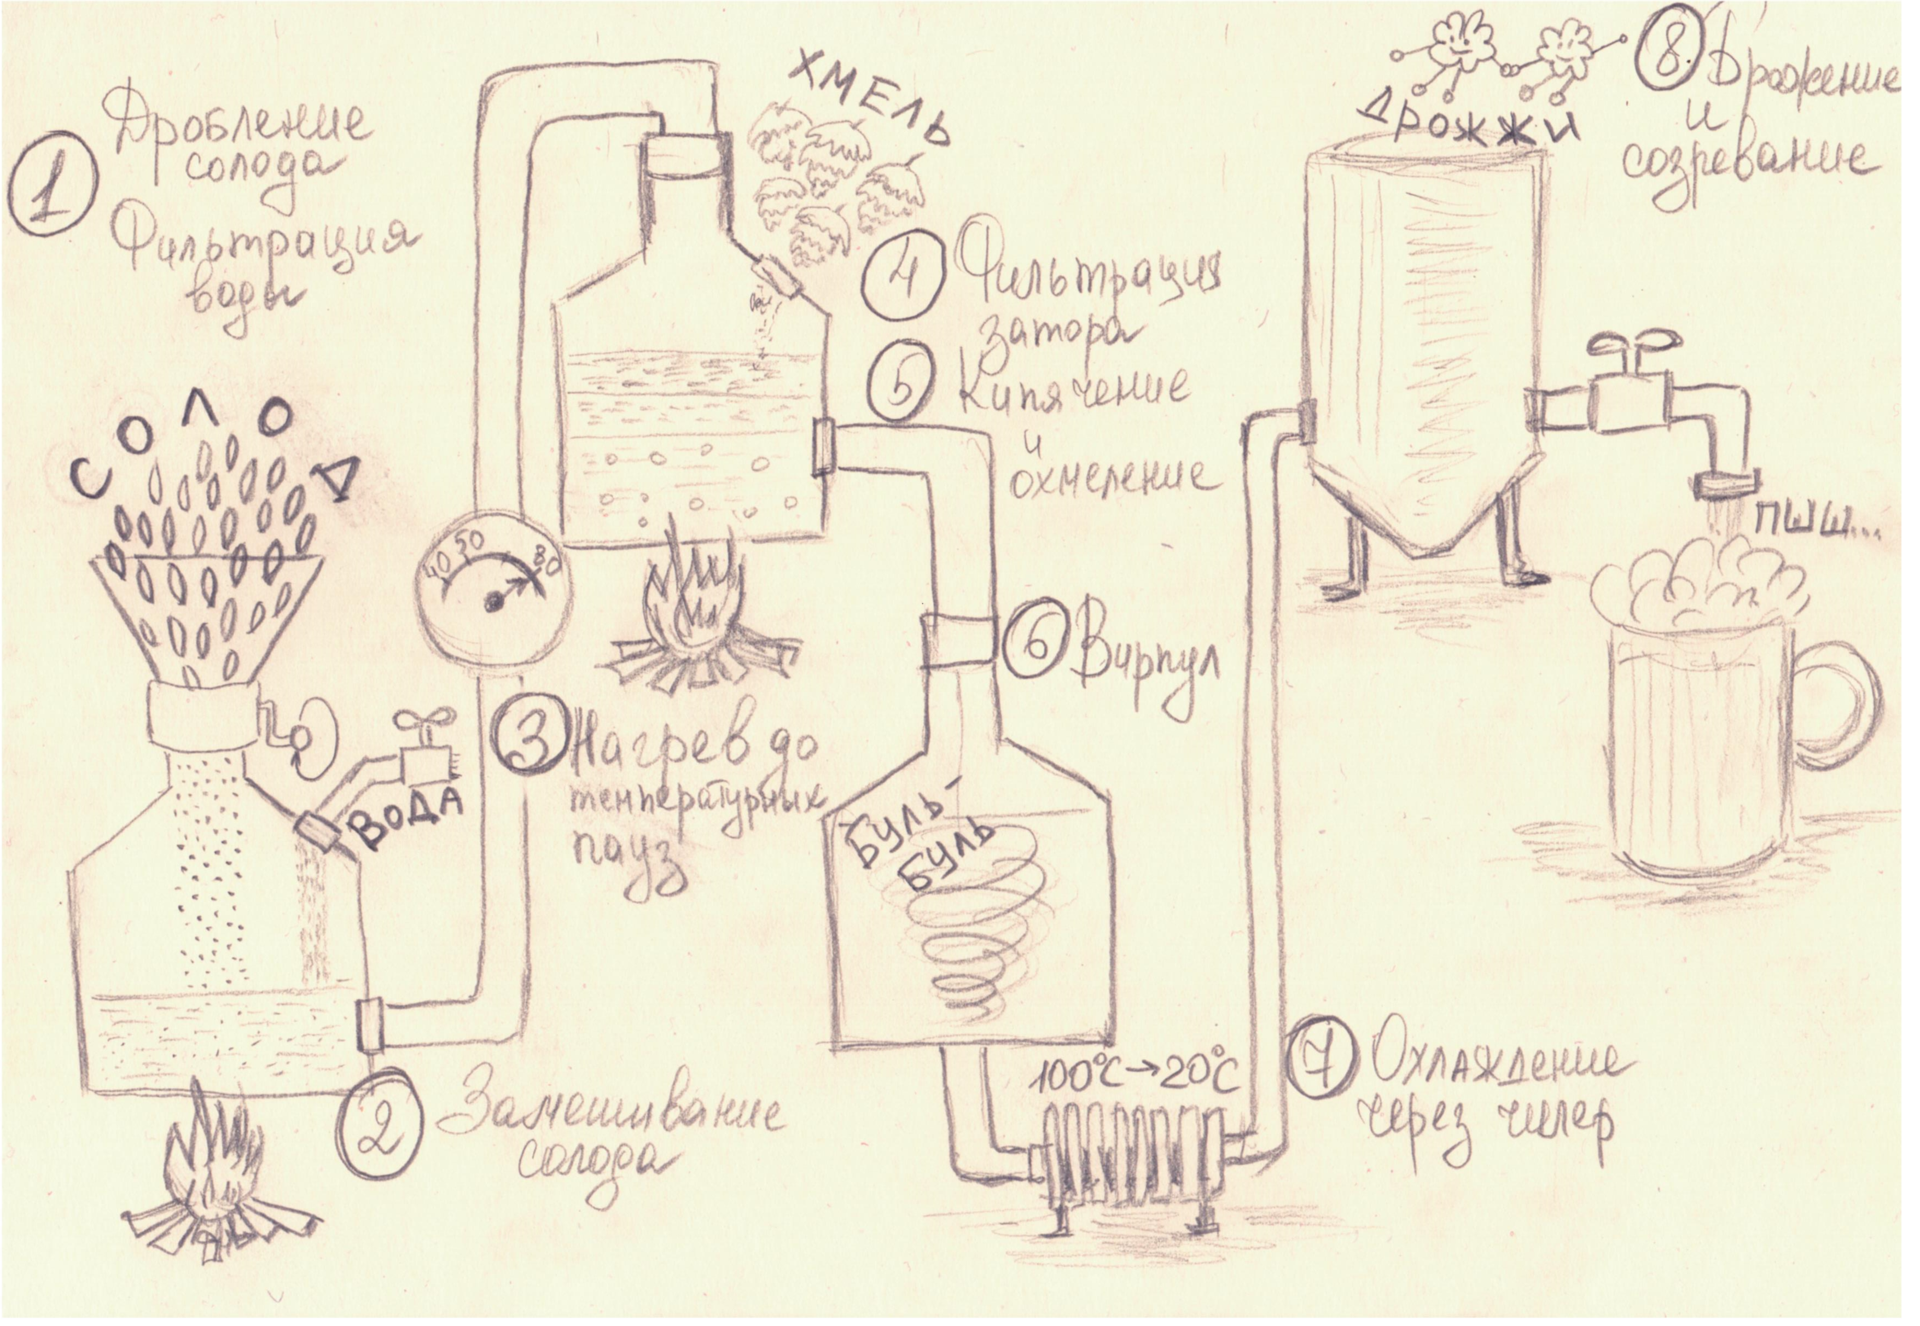 1
Дробление
солода
Фильтрация
воды
СОЛОД
ВОДА
2
Замешивание
солода
40 50 80
3
Нагрев до
температурных
пауз
ХМЕЛЬ
4
Фильтрация
затора
5
Кипячение
и
охмеление
6
Вирпул
БУЛЬ-
БУЛЬ
100°C→20°C
7
Охлаждение
через чилер
ДРОЖЖИ
8
Брожение
и
созревание
ПШШ...